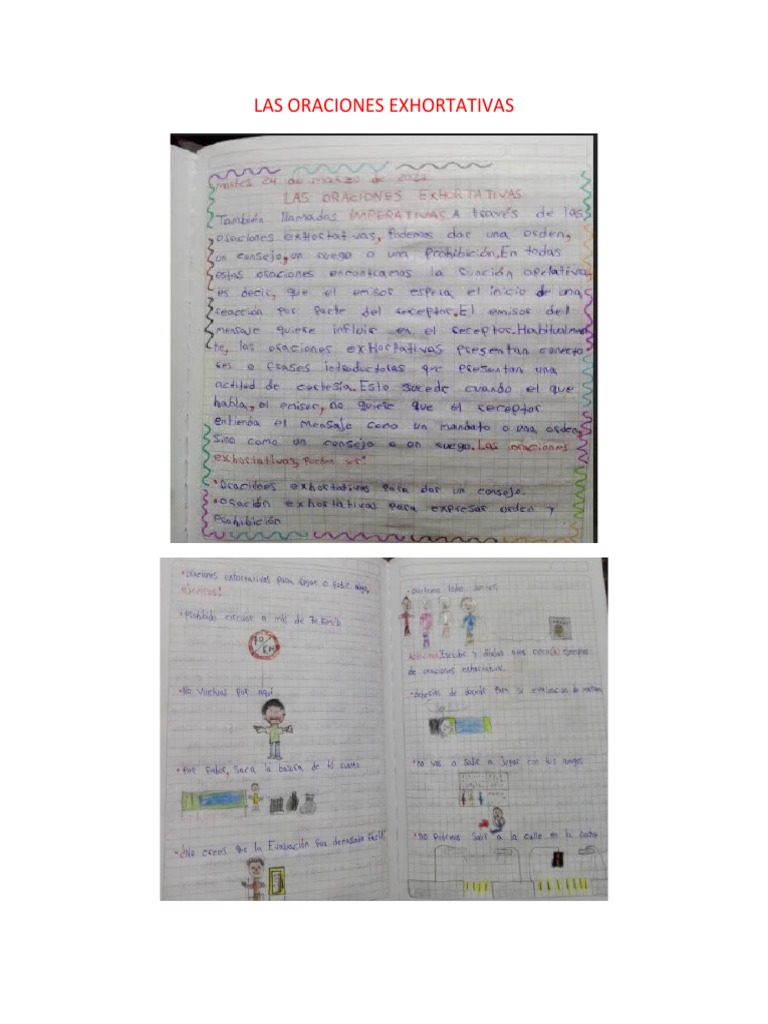 LAS ORACIONES EXHORTATIVAS
Martes 24 de marzo de
LAS ORACIONES EXHORTATIVAS
También llamadas IMPERATIVAS. A través de las
oraciones exhortativas, Podemos dar una orden,
un consejo, un ruego o una Prohibición. En todas
estas oraciones encontramos la función apelativa,
es decir, que el emisor espera el inicio de una
reacción por parte del receptor. El emisor del
mensaje quiere influir en el receptor. Habitualmen
te, las oraciones exhortativas presentan conecto
res o frases introductoras que presentan una
actitud de cortesía. Esto sucede cuando el que
habla, el emisor, no quiere que el receptor
entienda el mensaje como un mandato o una orden,
sino como un consejo o un ruego. Las oraciones
exhortativas, Pueden ser:
• Oraciones exhortativas para dar un consejo.
• Oración exhortativas para expresar orden y
Prohibición
• Oraciones exhortativas para rogar o pedir algo,
ejemplos:
• Prohibido circular a más de 70 Km/h
70
KM
• No vuelvas por aquí
• Por fabor, saca la basura de tú cuarto
• ¿No crees que la Evaluación fue demasiado fácil?
• todos juntos
Actividad: Escribe y dibuja ejemplos
de oraciones exhortativas.
• deberías de para su evaluación de
• no vas a salir a jugar con tus amigos
• no Podemos salir a la calle en la noche